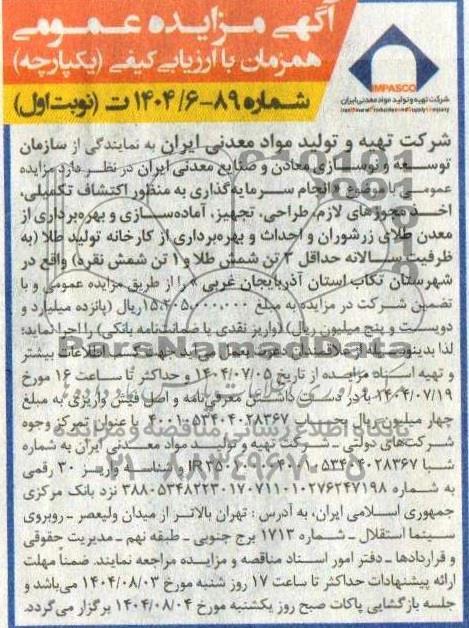 آگهی مزایده عمومی
همزمان با ارزیابی کیفی (یکپارچه)
شماره ۸۹-۱۴۰۴/۶ ت (نوبت اول)
IMPASCO
شرکت تهیه و تولید مواد معدنی ایران
شرکت تهیه و تولید مواد معدنی ایران به نمایندگی از سازمان
توسعه و نوسازی معادن و صنایع معدنی ایران در نظر دارد مزایده
عمومی با موضوع «انجام سرمایه‌گذاری به منظور اکتشاف تکمیلی،
اخذ مجوزهای لازم، طراحی، تجهیز، آماده‌سازی و بهره‌برداری از
معدن طلای زرشوران و احداث و بهره‌برداری از کارخانه تولید طلا (به
ظرفیت سالانه حداقل ۳ تن شمش طلا و ۱ تن شمش نقره) واقع در
شهرستان تکاب استان آذربایجان غربی» را از طریق مزایده عمومی و با
تضمین شرکت در مزایده به مبلغ ریال (پانزده میلیارد و
دویست و پنج میلیون ریال) (واریز نقدی یا ضمانتنامه بانکی) را اجرا نماید؛
لذا بدینوسیله از علاقمندان دعوت بعمل می‌آید جهت کسب اطلاعات بیشتر
و تهیه اسناد مزایده از تاریخ ۱۴۰۴/۰۷/۰۵ و حداکثر تا ساعت ۱۶ مورخ
۱۴۰۴/۰۷/۱۹ با در دست داشتن معرفی‌نامه و اصل فیش واریزی به مبلغ
چهار میلیون ریال بحساب با عنوان تمرکز وجوه
شرکت‌های دولتی - شرکت تهیه و تولید مواد معدنی ایران به شماره
شبا و شناسه واریز ۳۰ رقمی
به شماره نزد بانک مرکزی
جمهوری اسلامی ایران، به آدرس: تهران بالاتر از میدان ولیعصر - روبروی
سینما استقلال - شماره ۱۷۱۳ برج جنوبی - طبقه نهم - مدیریت حقوقی
و قراردادها - دفتر امور اسناد مناقصه و مزایده مراجعه نمایند. ضمناً مهلت
ارائه پیشنهادات حداکثر تا ساعت ۱۷ روز شنبه مورخ ۱۴۰۴/۰۸/۰۳ می‌باشد و
جلسه بازگشایی پاکات صبح روز یکشنبه مورخ ۱۴۰۴/۰۸/۰۴ برگزار می‌گردد.
ParsNamadData